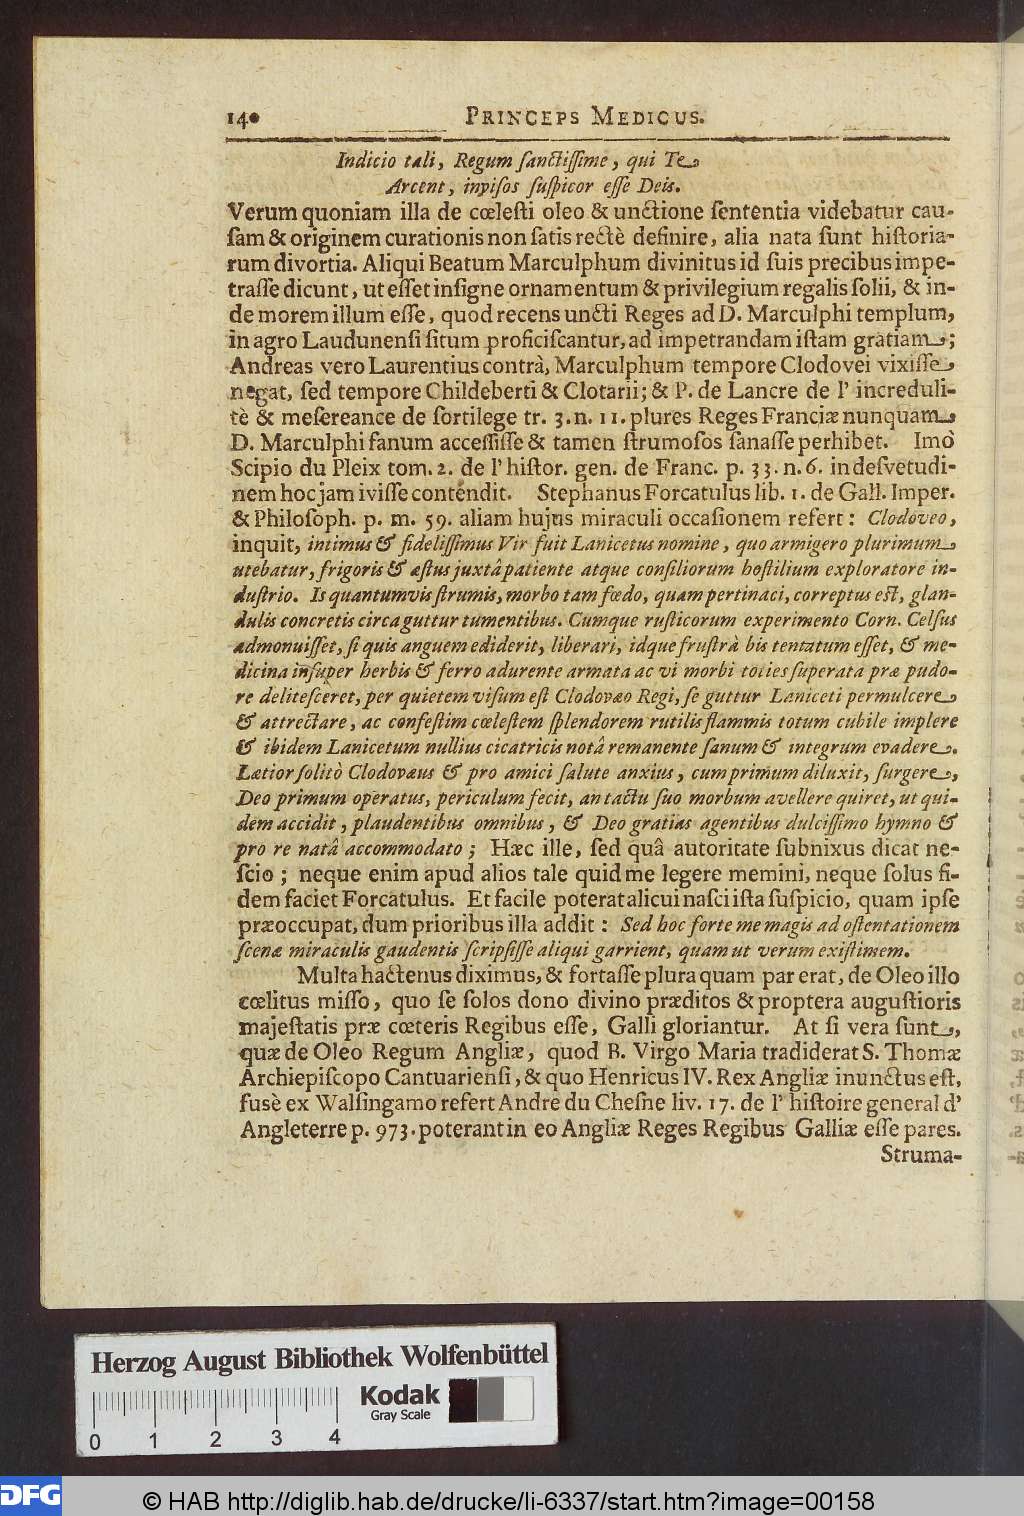 140 PRINCEPS MEDICUS.
Indicio tali, Regum ſanctiſſime, qui Te
Arcent, inviſos ſuſpicor eſſe Deis.
Verum quoniam illa de cœleſti oleo & unctione ſententia videbatur cau-
ſam & originem curationis non ſatis rectè definire, alia nata ſunt hiſtoria-
rum divortia. Aliqui Beatum Marculphum divinitus id ſuis precibus impe-
traſſe dicunt, ut eſſet inſigne ornamentum & privilegium regalis ſolii, & in-
de morem illum eſſe, quod recens uncti Reges ad D. Marculphi templum,
in agro Laudunenſi ſitum proficiſcantur, ad impetrandam iſtam gratiam;
Andreas vero Laurentius contrà, Marculphum tempore Clodovei vixiſſe
negat, ſed tempore Childeberti & Clotarii; & P. de Lancre de l' increduli-
tè & meſereance de ſortilege tr. 3. n. 11. plures Reges Franciæ nunquam
D. Marculphi fanum acceſſiſſe & tamen ſtrumoſos ſanaſſe perhibet. Imò
Scipio du Pleix tom. 2. de l' hiſtor. gen. de Franc. p. 33. n. 6. in deſvetudi-
nem hoc jam iviſſe contendit. Stephanus Forcatulus lib. 1. de Gall. Imper.
& Philoſoph. p. m. 59. aliam hujus miraculi occaſionem refert: Clodoveo,
inquit, intimus & fideliſſimus Vir fuit Lanicetus nomine, quo armigero plurimum
utebatur, frigoris & æſtus juxtâ patiente atque conſiliorum hoſtilium exploratore in-
duſtrio. Is quantumvis ſtrumis, morbo tam fœdo, quam pertinaci, correptus eſt, glan-
dulis concretis circa guttur tumentibus. Cumque ruſticorum experimento Corn. Celſus
admonuiſſet, ſi quis anguem ediderit, liberari, idque fruſtrà bis tentatum eſſet, & me-
dicina inſuper herbis & ferro adurente armata ac vi morbi toties ſuperata præ pudo-
re deliteſceret, per quietem viſum eſt Clodovæo Regi, ſe guttur Laniceti permulcere
& attrectare, ac confeſtim cœleſtem ſplendorem rutilis flammis totum cubile implere
& ibidem Lanicetum nullius cicatricis notâ remanente ſanum & integrum evadere.
Lætior ſolitò Clodovæus & pro amici ſalute anxius, cum primum diluxit, ſurgere,
Deo primum operatus, periculum fecit, an tactu ſuo morbum avellere quiret, ut qui-
dem accidit, plaudentibus omnibus, & Deo gratias agentibus dulciſſimo hymno &
pro re natâ accommodato; Hæc ille, ſed quâ autoritate ſubnixus dicat ne-
ſcio; neque enim apud alios tale quid me legere memini, neque ſolus fi-
dem faciet Forcatulus. Et facile poterat alicui naſci iſta ſuſpicio, quam ipſe
præoccupat, dum prioribus illa addit: Sed hoc forte me magis ad oſtentationem
ſcenæ miraculis gaudentis ſcripſiſſe aliqui garrient, quam ut verum exiſtimem.
Multa hactenus diximus, & fortaſſe plura quam par erat, de Oleo illo
cœlitus miſſo, quo ſe ſolos dono divino præditos & proptera auguſtioris
majeſtatis præ cœteris Regibus eſſe, Galli gloriantur. At ſi vera ſunt,
quæ de Oleo Regum Angliæ, quod B. Virgo Maria tradiderat S. Thomæ
Archiepiſcopo Cantuarienſi, & quo Henricus IV. Rex Angliæ inunctus eſt,
fusè ex Walſingamo refert Andre du Cheſne liv. 17. de l' hiſtoire general d'
Angleterre p. 973. poterant in eo Angliæ Reges Regibus Galliæ eſſe pares.
Struma-
Herzog August Bibliothek Wolfenbüttel
Kodak
Gray Scale
0 1 2 3 4
DFG © HAB http://diglib.hab.de/drucke/li-6337/start.htm?image=00158